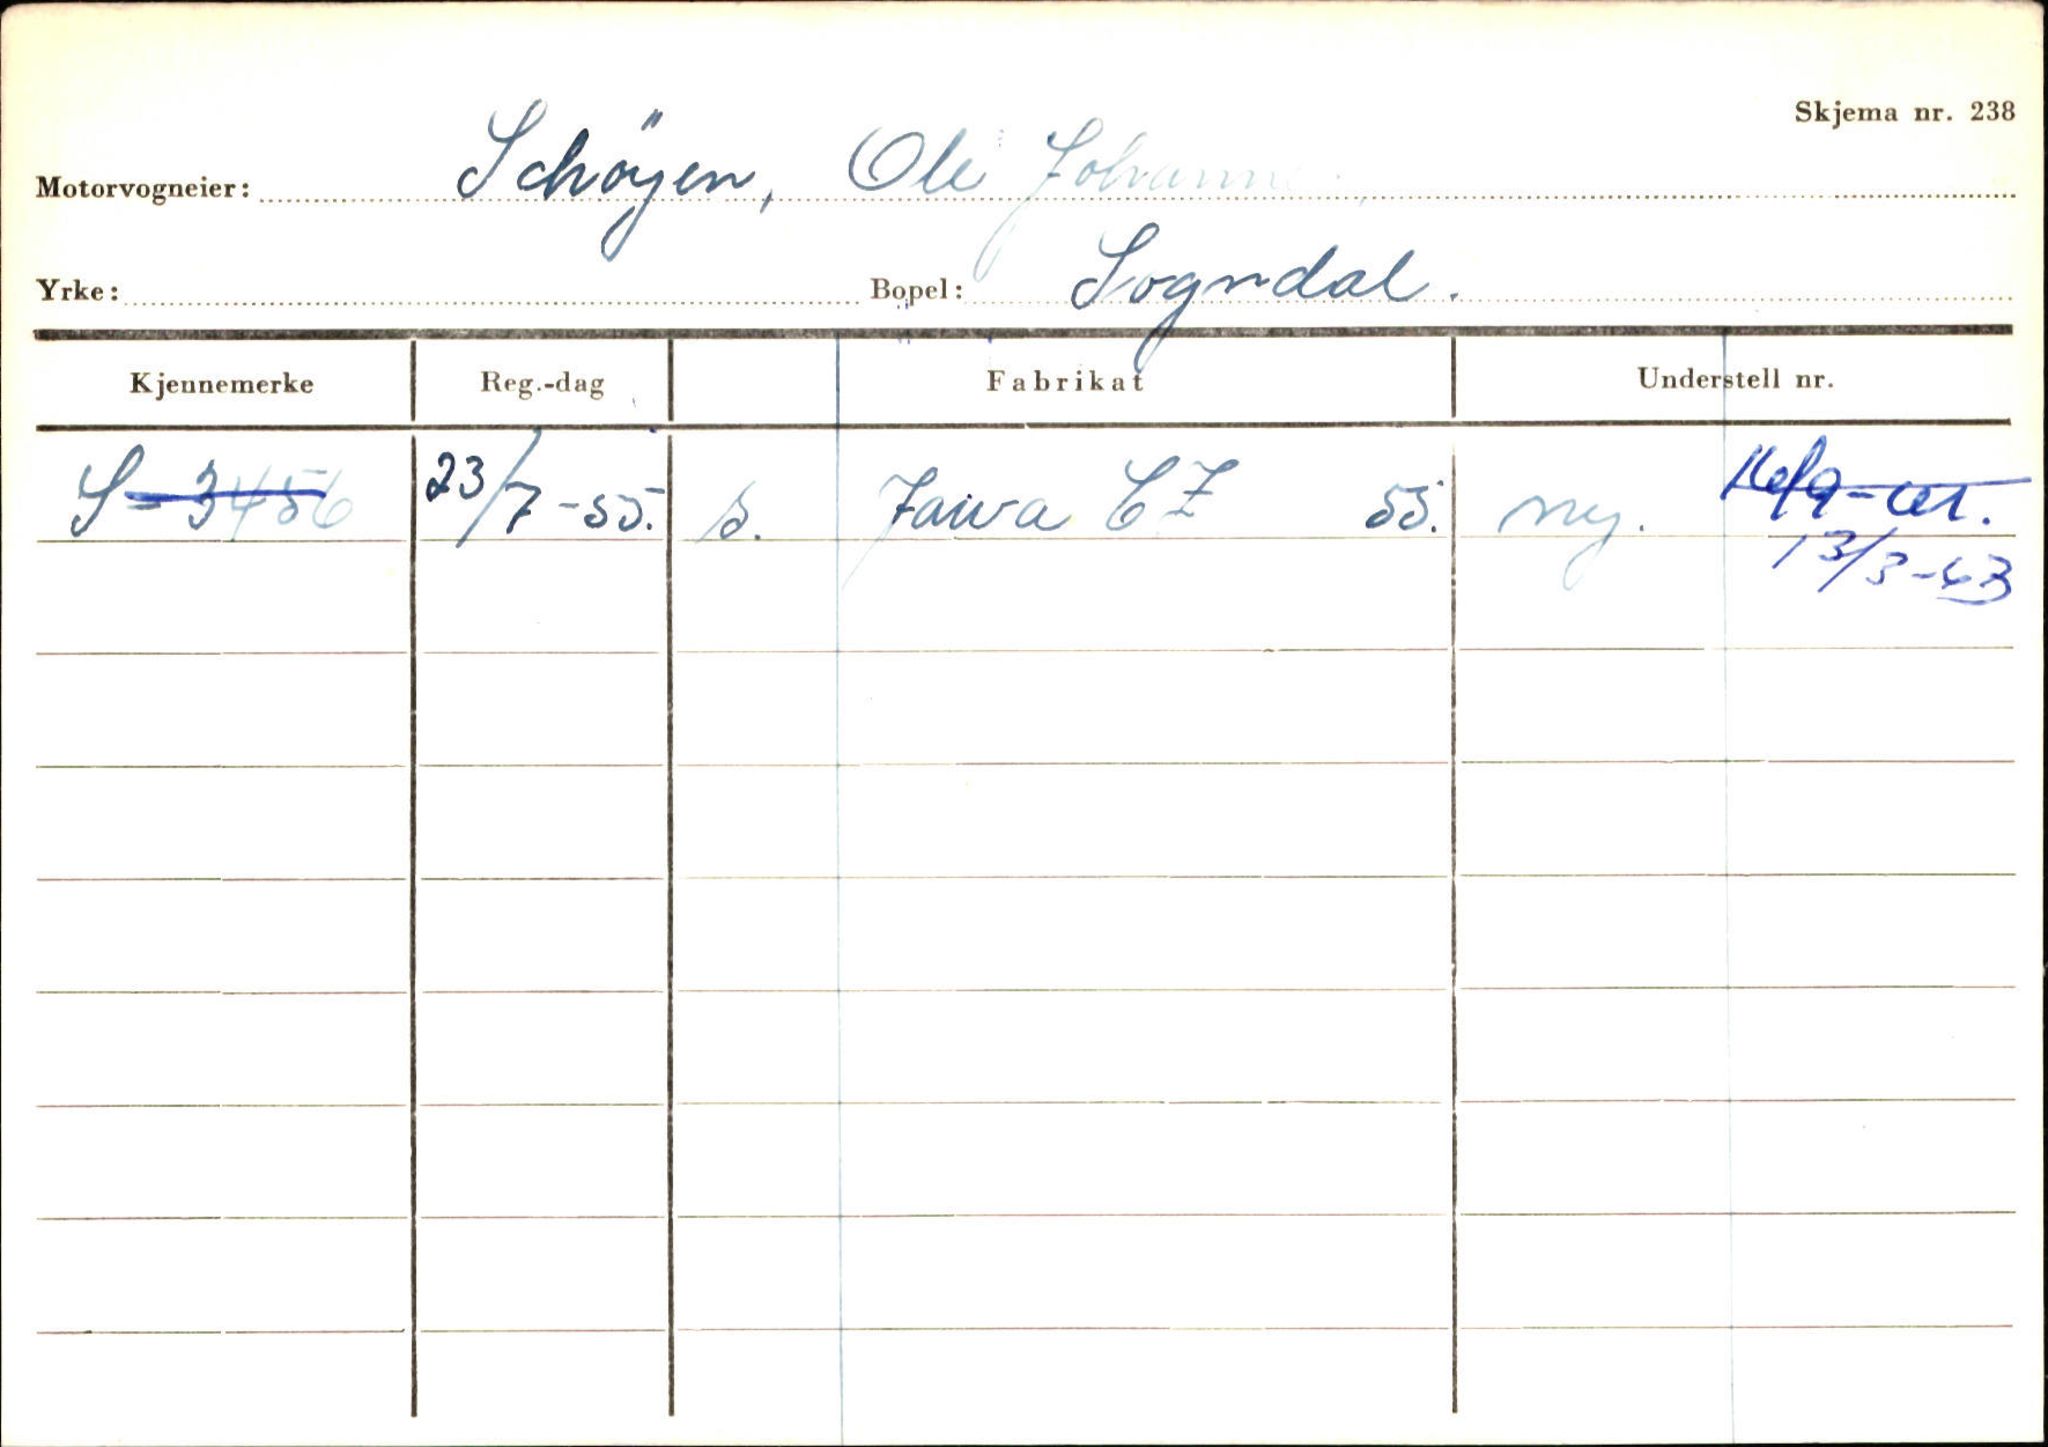 Skjema nr. 238
Motorvogneier: Schöyen, Ole Johann
Yrke: Bopel: Sogndal.
Kjennemerke Reg.-dag Fabrikat Understell nr.
S-3456 23/7-55. s. Jawa CZ 55. ny.
13/3-63